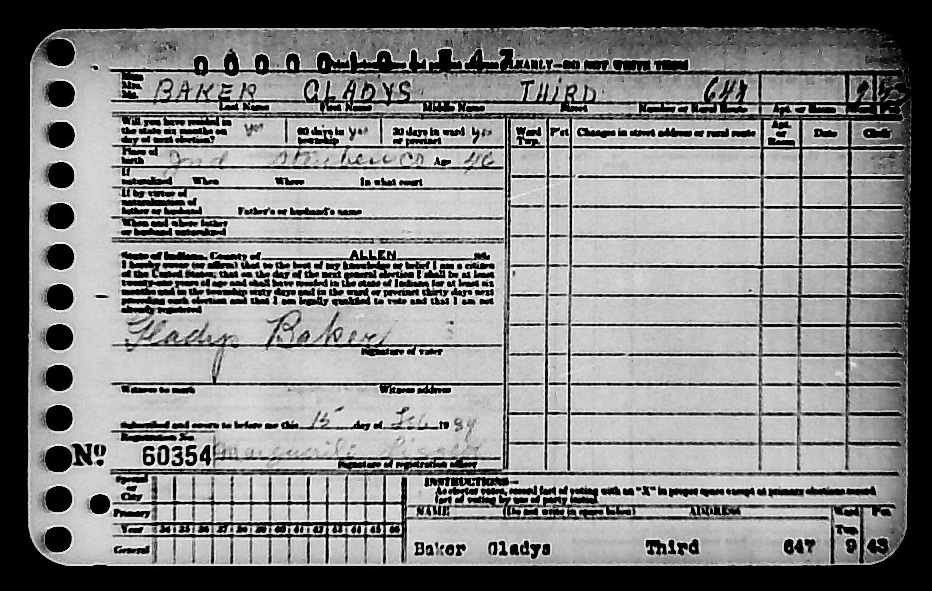 CLEARLY—DO NOT WRITE THERE
Mrs. Ms. BAKER GLADYS THIRD 647 9 43
Last Name First Name Middle Name Street Number or Rural Route Apt. or Room Ward Pct.
Will you have resided in the state six months on day of next election? yes 60 days in township yes 30 days in ward or precinct yes
Ward Twp. P'ct Changes in street address or rural route Apt. or Room Date Clerk
Place of birth Ind Steuben Co Age 46
If naturalized When Where In what court
If by virtue of naturalization of father or husband Father's or husband's name
When and where father or husband naturalized
State of Indiana, County of ALLEN ss:
I hereby swear (or affirm) that to the best of my knowledge or belief I am a citizen
of the United States; that on the day of the next general election I shall be at least
twenty-one years of age and shall have resided in the state of Indiana for at least six
months and in the township sixty days and in the ward or precinct thirty days next
preceding such election and that I am legally qualified to vote and that I am not
already registered
Gladys Baker
Signature of voter
Witness to mark Witness address
Subscribed and sworn to before me this 15 day of Feb 19 34
Registration No.
No. 60354 Marguerite
Signature of registration officer
Special or City
Primary
Year 34 35 36 37 38 39 40 41 42 43 44 45 46
General
INSTRUCTIONS—
As elector votes, record fact of voting with an "X" in proper space except at primary elections record
fact of voting by use of party initial.
NAME (Do not write in space below) ADDRESS Ward Twp. Pct.
Baker Gladys Third 647 9 43